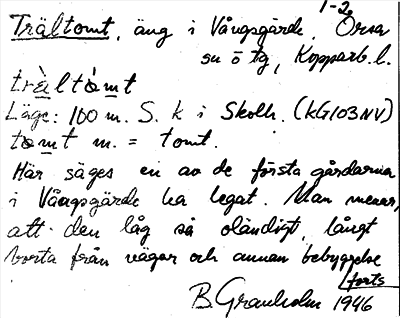 1-2.
Trältomt, äng i Vångsgärde, Orsa
sn ö tg, Kopparb. l.
trä̀ltòmt
Läge: 100 m. S. k i Skolh. (kG103NV)
tomt m. = tomt.
Här säges en av de första gårdarna
i Vångsgärde ha legat. Man menar,
att den låg så oländigt, långt
borta från vägar och annan bebyggelse
forts
B. Granholm 1946